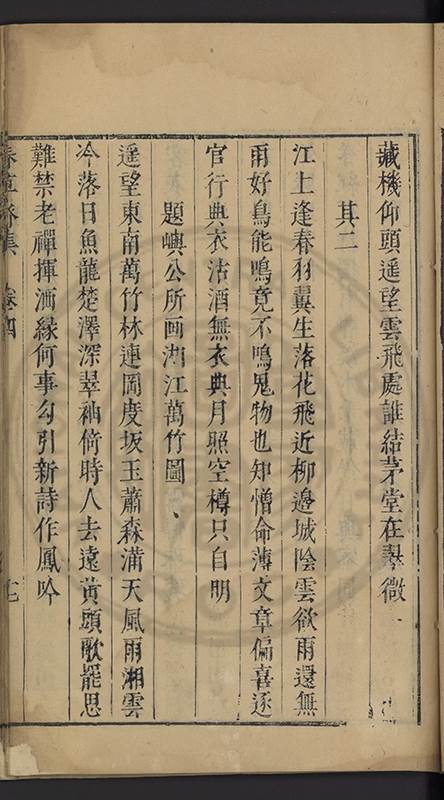 藏機仰頭遥望雲飛處誰結茅堂在翠微
其二
江上逢春羽翼生落花飛近柳邊城陰雲欲雨還無
雨好鳥能鳴竟不鳴鬼物也知憎命薄文章偏喜逐
官行典衣沽酒無衣典月照空樽只自明
題嶼公所画湖江萬竹圖
遥望東南萬竹林連岡度坂玉蕭森满天風雨湘雲
冷落日魚龍楚澤深翠袖倚時人去遠黄頭歌罷思
難禁老禪揮洒緣何事勾引新詩作鳳吟
集 卷四 七